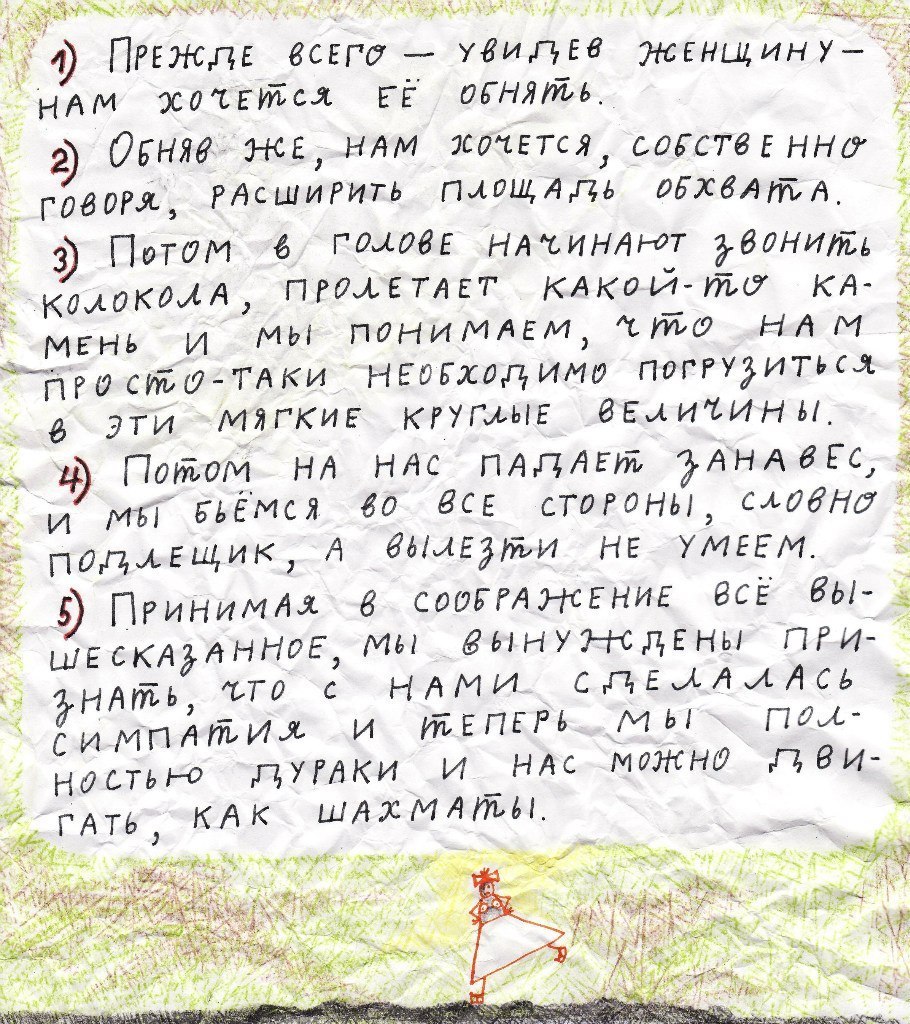 1) Прежде всего — увидев женщину —
нам хочется её обнять.
2) Обняв же, нам хочется, собственно
говоря, расширить площадь обхвата.
3) Потом в голове начинают звонить
колокола, пролетает какой-то ка-
мень и мы понимаем, что нам
просто-таки необходимо погрузиться
в эти мягкие круглые величины.
4) Потом на нас падает занавес,
и мы бьёмся во все стороны, словно
подлещик, а вылезти не умеем.
5) Принимая в соображение всё вы-
шесказанное, мы вынуждены при-
знать, что с нами сделалась
симпатия и теперь мы пол-
ностью дураки и нас можно дви-
гать, как шахматы.